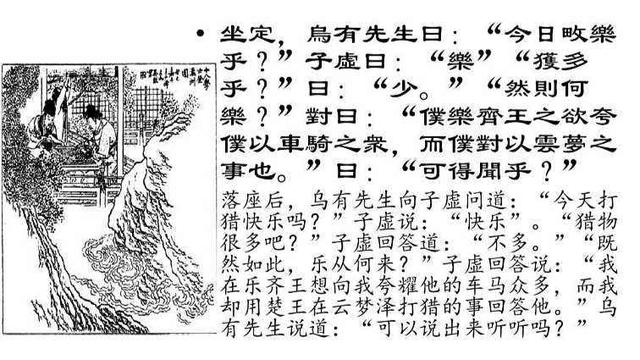 • 坐定，烏有先生曰：“今日畋樂
乎？”子虛曰：“樂”“獲多
乎？”曰：“少。”“然則何
樂？”對曰：“僕樂齊王之欲夸
僕以車騎之衆，而僕對以雲夢之
事也。”曰：“可得聞乎？”
落座后，乌有先生向子虚问道：“今天打
猎快乐吗？”子虚说：“快乐”。“猎物
很多吧？”子虚回答道：“不多。”“既
然如此，乐从何来？”子虚回答说：“我
在乐齐王想向我夸耀他的车马众多，而我
却用楚王在云梦泽打猎的事回答他。”乌
有先生说道：“可以说出来听听吗？”